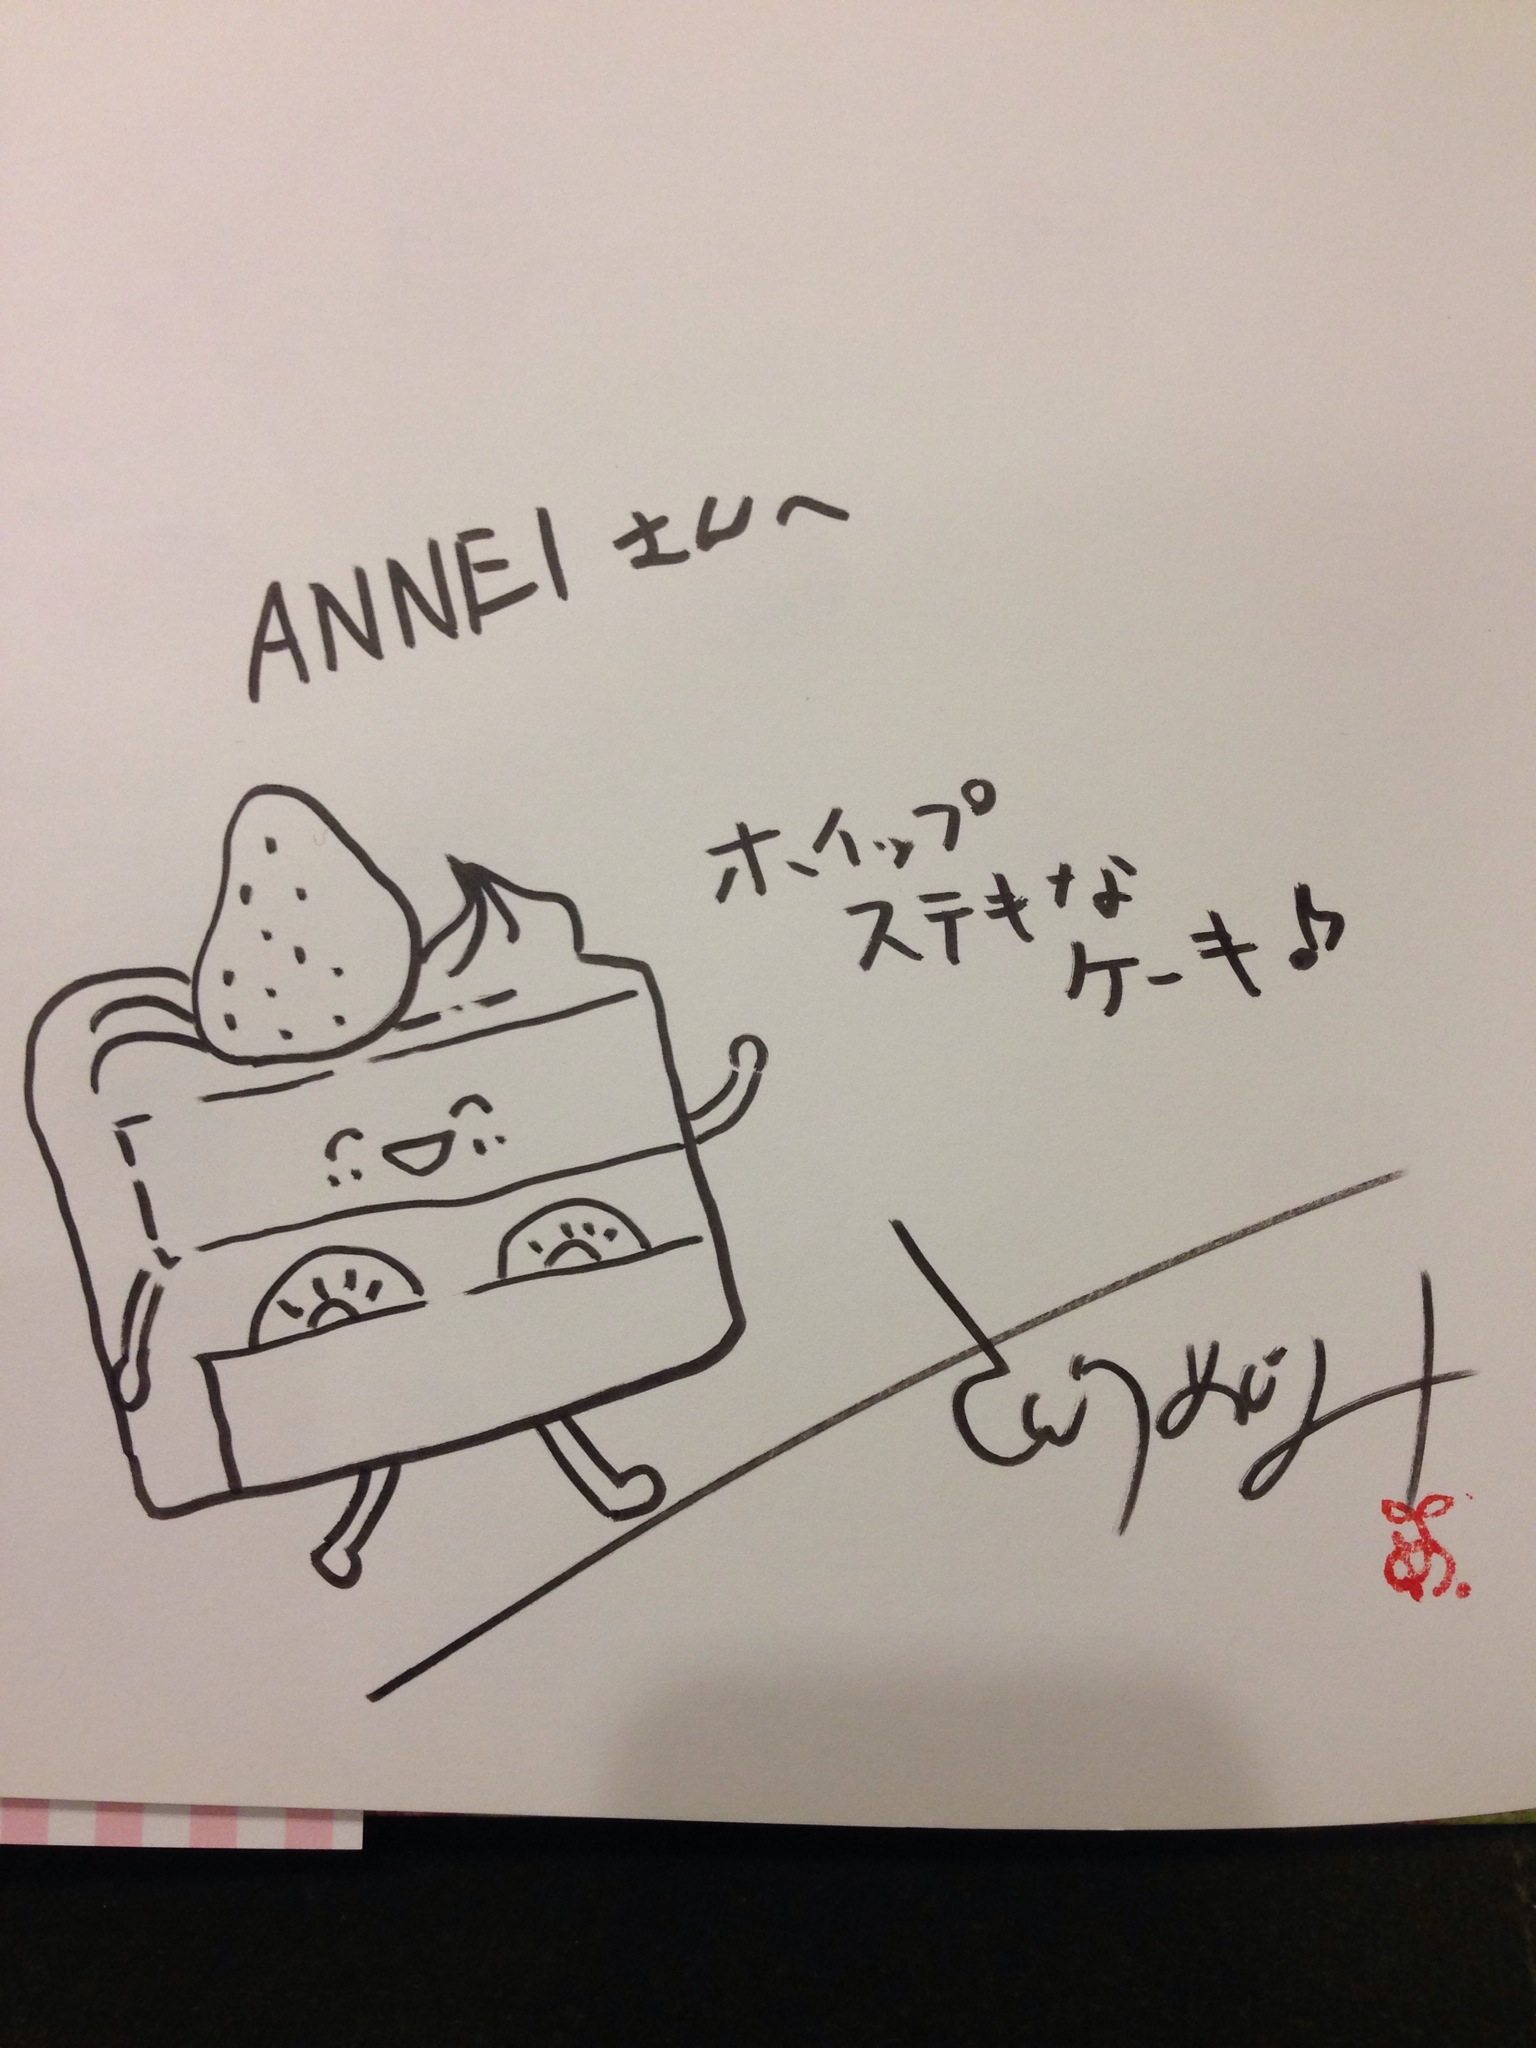 ANNEIさんへ
ホイップ
ステキな
ケーキ♪